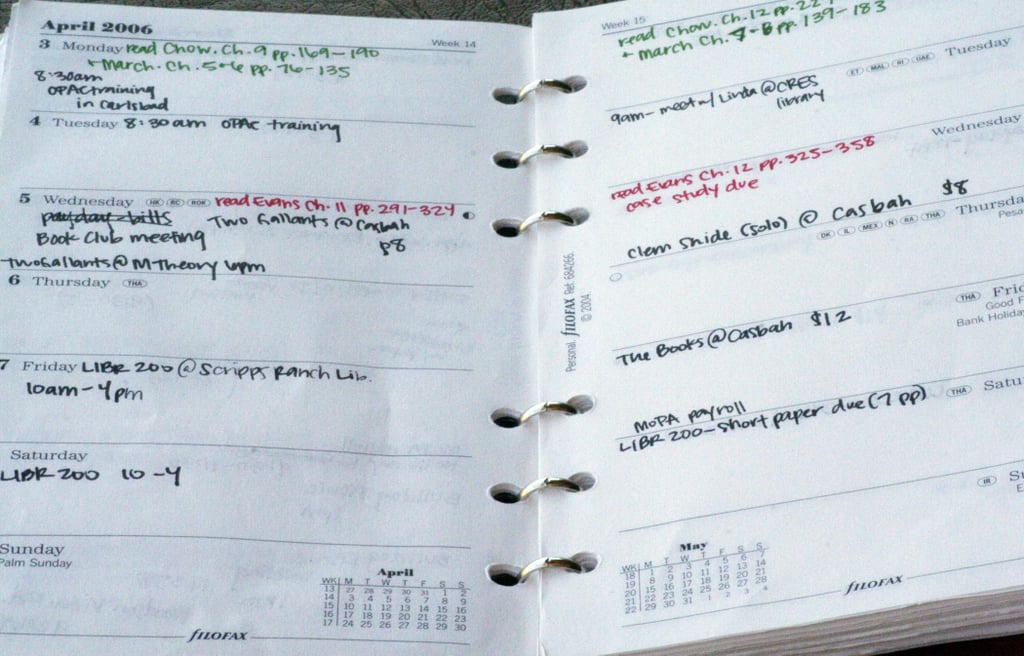 April 2006
Week 14
3 Monday read Chow. Ch. 9 pp. 169-190
+ March. Ch. 5+6 pp. 76-135
8:30am
OPAC training
in Carlsbad
4 Tuesday 8:30am OPAC training
5 Wednesday HK RC ROK read Evans Ch. 11 pp. 291-324
payday-bills Two Gallants @ Casbah
Book Club meeting $8
Two Gallants @ M-Theory 6pm
6 Thursday THA
7 Friday LIBR 200 @ Scripps Ranch Lib.
10am-4pm
Saturday
LIBR 200 10-4
Sunday
Palm Sunday
April
WK M T W T F S S
13 27 28 29 30 31 1 2
14 3 4 5 6 7 8 9
15 10 11 12 13 14 15 16
16 17 18 19 20 21 22 23
17 24 25 26 27 28 29 30
fILOFAX
Personal. fILOFAX Ref. 684266
© 2004.
Week 15
read Chow. Ch. 12 pp.
+ March Ch. 7-8 pp 139-183
Tuesday
ET MAL RI UAE
9am- meet w/ Linda @ CRES
library
Wednesday
read Evans Ch. 12 pp. 325-358
case study due
Clem Snide (solo) @ Casbah $8
Thursda
DK IL MEX N RA THA
Pesa
The Books @ Casbah $12
THA Frid
Good F
Bank Holiday
MoPA payroll
LIBR 200-short paper due (7 pp)
THA Satu
IR Su
E
May
WK M T W T F S S
18 1 2 3 4 5 6 7
19 8 9 10 11 12 13 14
20 15 16 17 18 19 20 21
21 22 23 24 25 26 27 28
22 29 30 31 1 2 3 4
fILOFAX